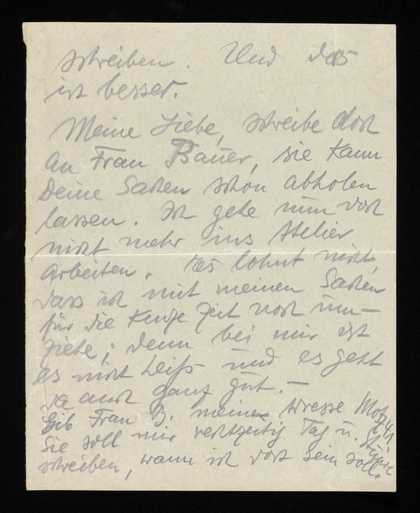 schreiben. Und das
ist besser.
Meine Liebe, schreibe doch
an Frau Bauer, sie kann
Deine Sachen schon abholen
lassen. Ich gehe nun doch
nicht mehr ins Atelier
arbeiten. Es lohnt nicht,
dass ich mit meinen Sachen
für die kurze Zeit noch um-
ziehe; denn bei mir ist
es nicht heiß und es geht
ja auch ganz gut. –
Gib Frau B. meine Adresse
Sie soll mir rechtzeitig Tag u.
schreiben, wann ich dort sein soll.